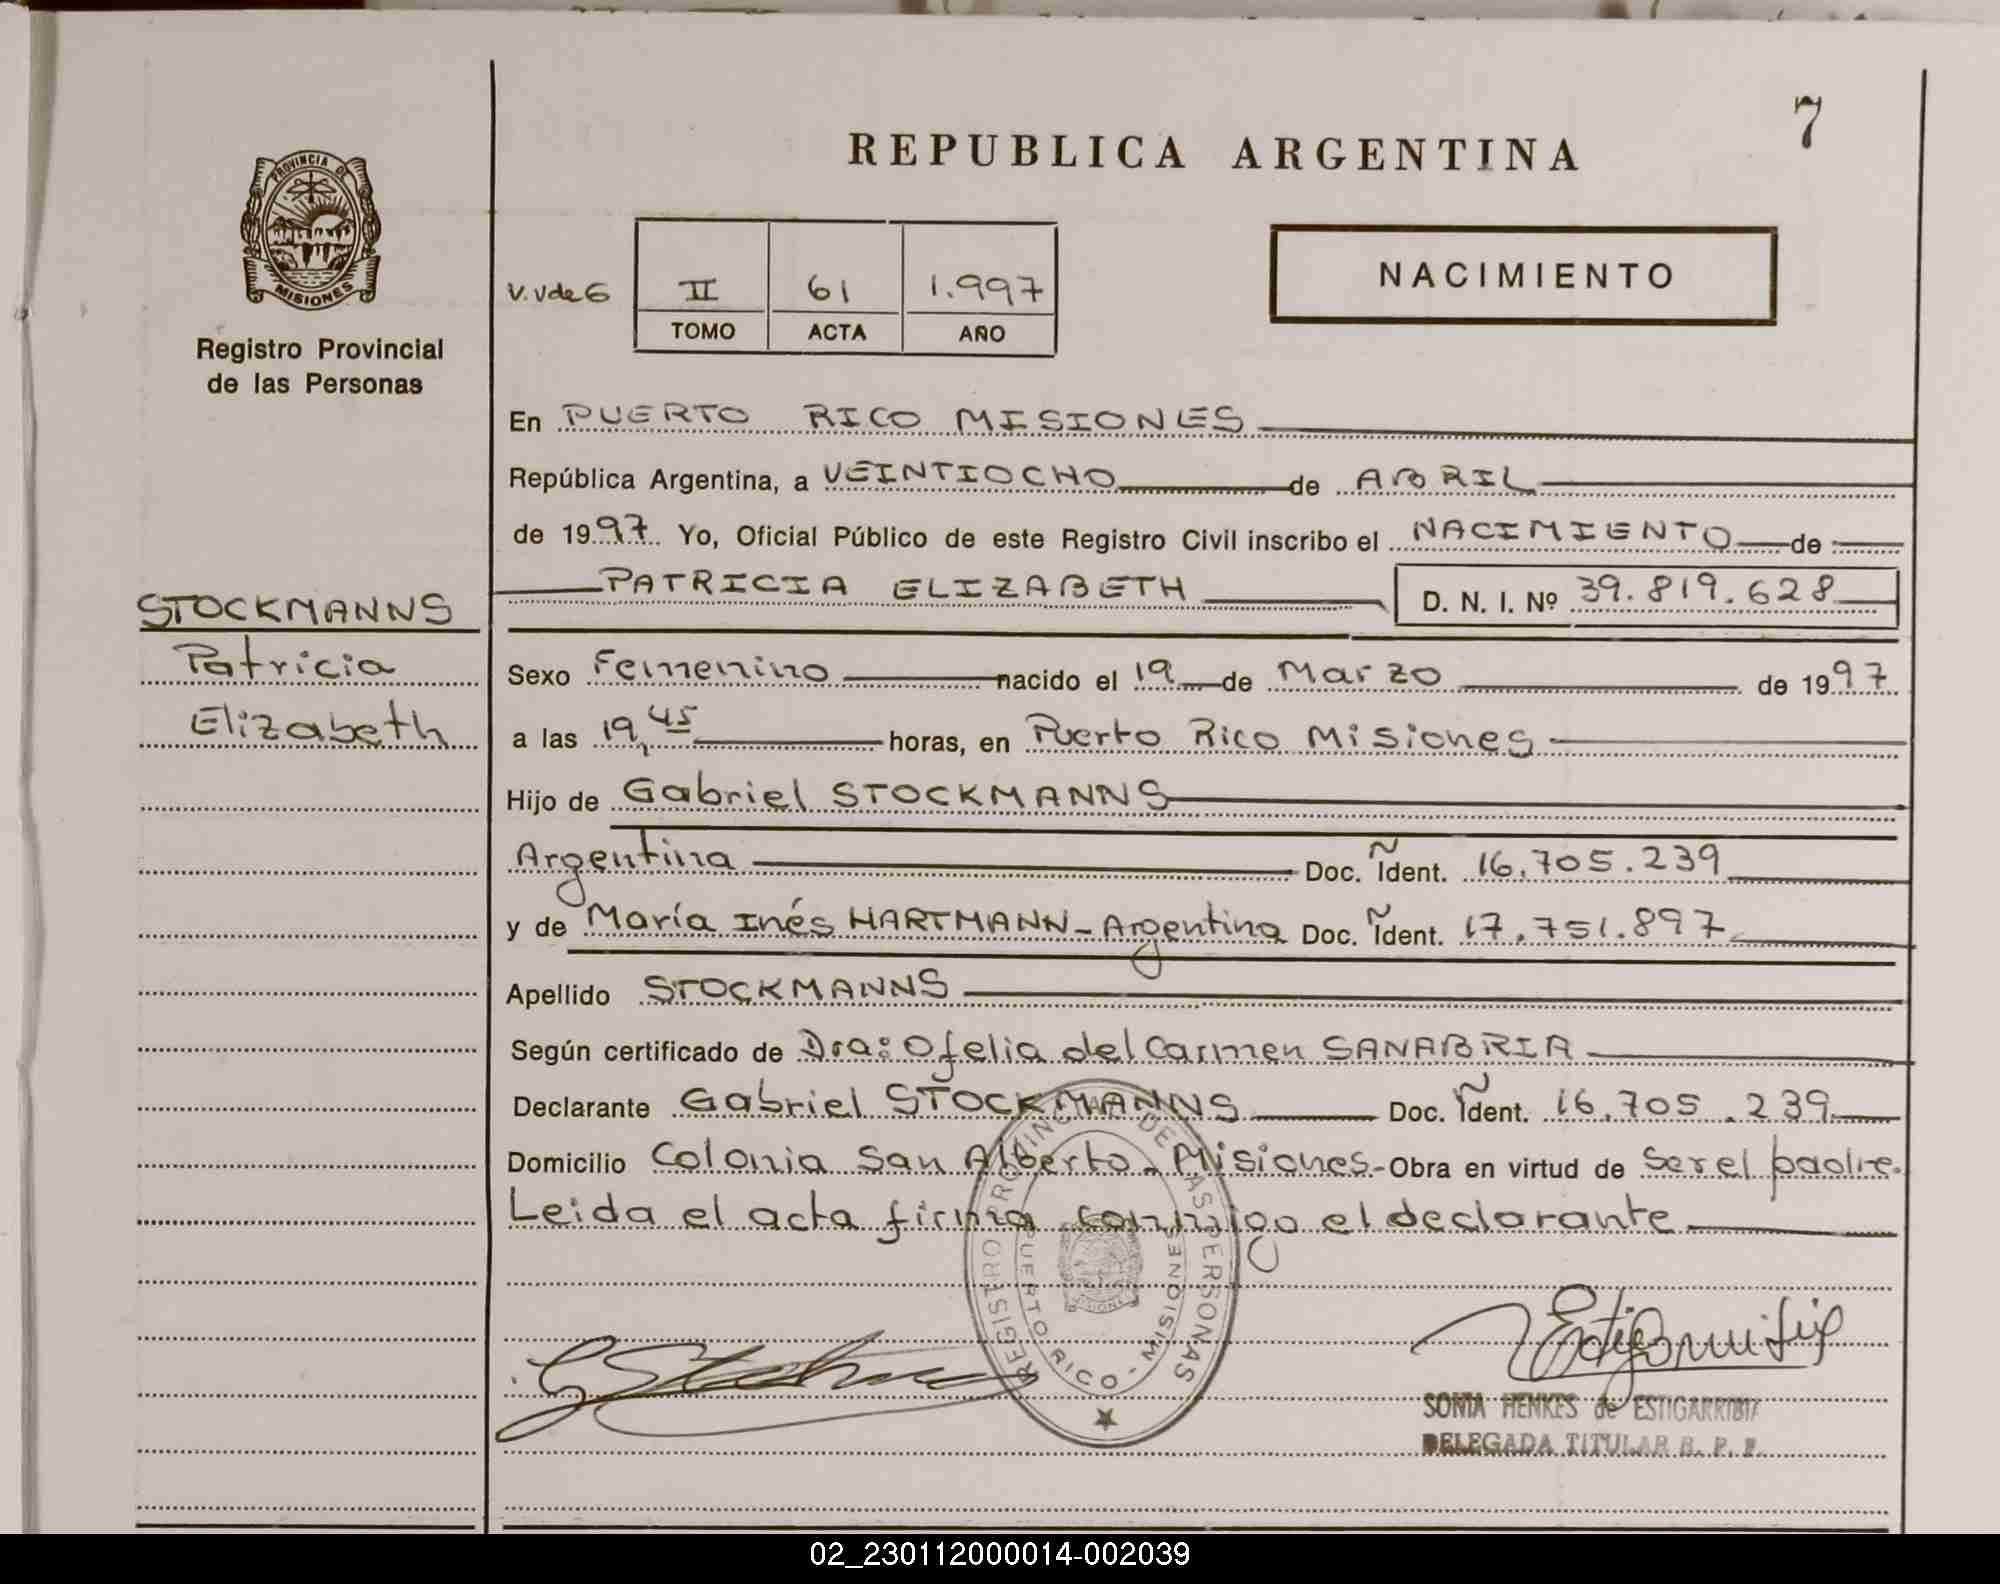 7
REPUBLICA ARGENTINA
PROVINCIA DE
MISIONES
Registro Provincial
de las Personas
V. Vde 6
II 61 1.997
TOMO ACTA AÑO
NACIMIENTO
En PUERTO RICO MISIONES
República Argentina, a VEINTIOCHO de ABRIL
de 1997 Yo, Oficial Público de este Registro Civil inscribo el NACIMIENTO de
PATRICIA ELIZABETH D. N. I. Nº 39.819.628
STOCKMANNS
Patricia
Elizabeth
Sexo Femenino nacido el 19 de Marzo de 1997
a las 19,45 horas, en Puerto Rico Misiones
Hijo de Gabriel STOCKMANNS
Argentina Doc. Ident. Ñ 16.705.239
y de María Inés HARTMANN - Argentina Doc. Ident. Ñ 17.751.897
Apellido STOCKMANNS
Según certificado de Dra: Ofelia del Carmen SANABRIA
Declarante Gabriel STOCKMANNS Doc. Ident. Ñ 16.705.239
Domicilio Colonia San Alberto - Misiones - Obra en virtud de ser el padre.
Leida el acta firma conmigo el declarante
REGISTRO PROVINCIAL DE LAS PERSONAS
PUERTO RICO - MISIONES
MISIONES
SONIA HENKES de ESTIGARRIBIA
DELEGADA TITULAR R. P. P.
02_230112000014-002039